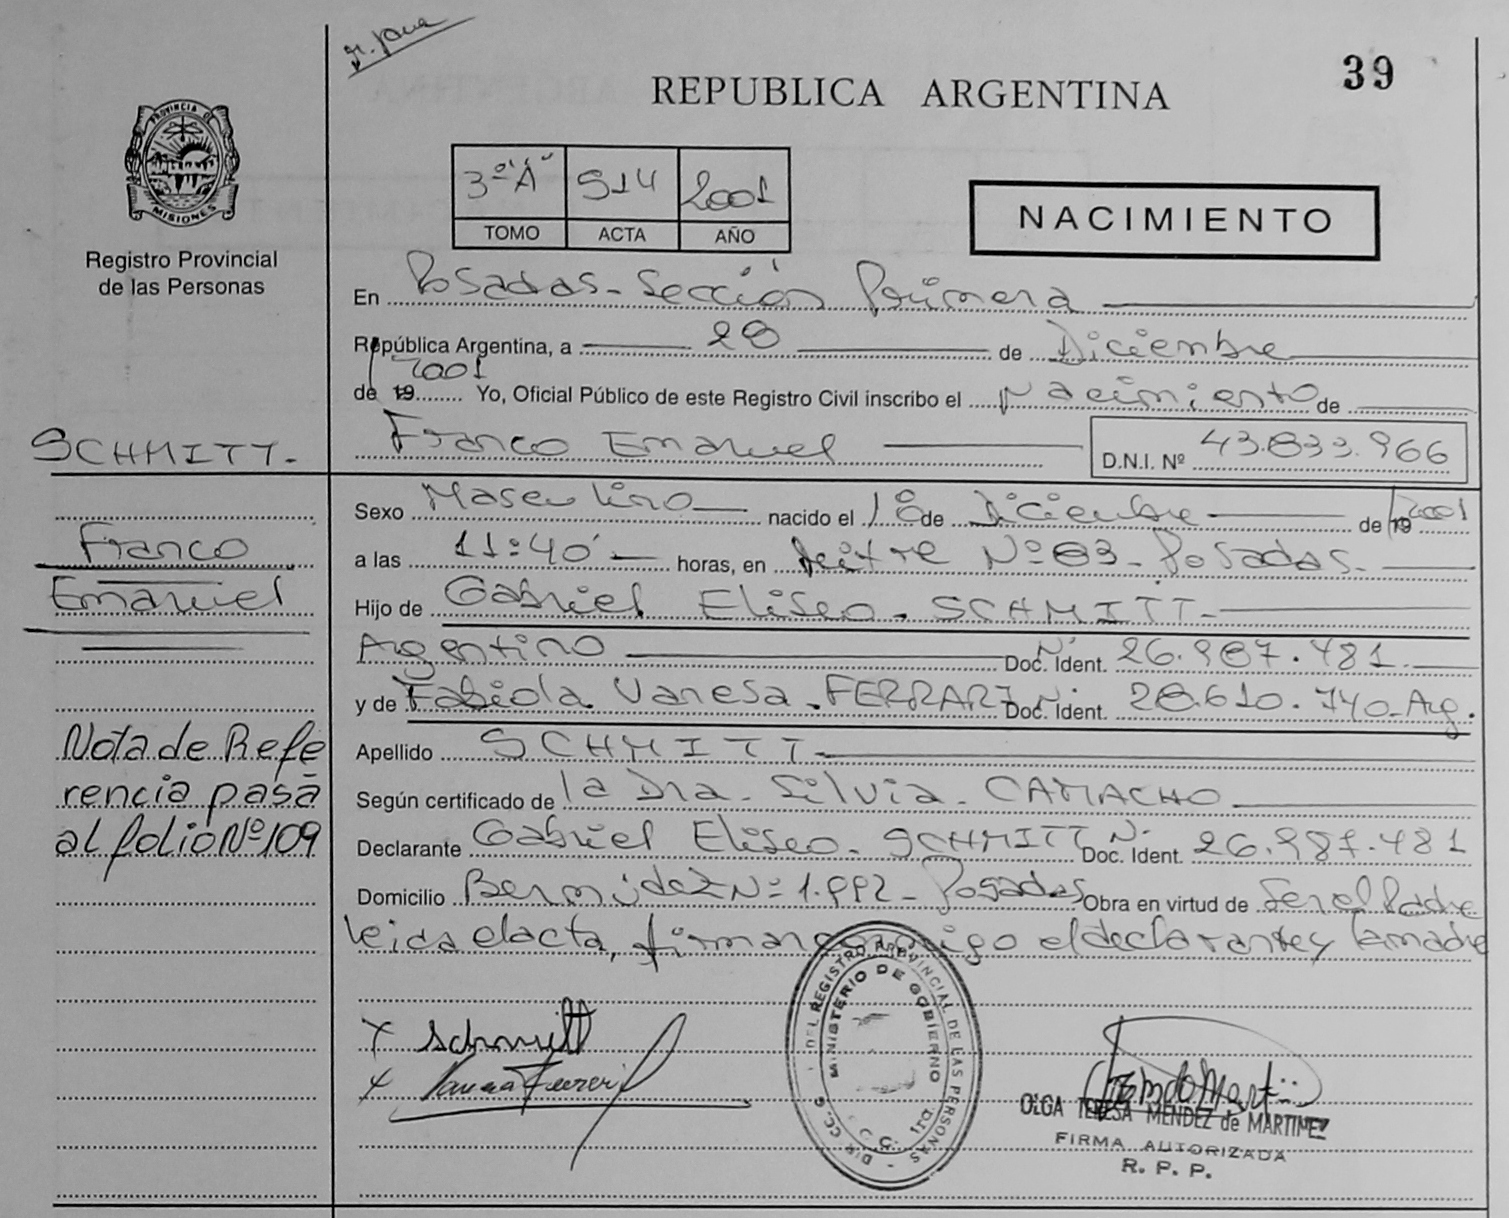 39
REPUBLICA ARGENTINA
PROVINCIA DE
MISIONES
Registro Provincial
de las Personas
3º "A" 514 2001
TOMO ACTA AÑO
NACIMIENTO
En Posadas - Sección Primera
República Argentina, a 28 de Diciembre
de 19 2001 Yo, Oficial Público de este Registro Civil inscribo el Nacimiento de
SCHMITT.-
Franco Emanuel D.N.I. Nº 43.833.966
Sexo Masculino nacido el 18 de Diciembre de 19 2001
Franco
Emanuel
a las 11:40' horas, en Nº 83 - Posadas.-
Hijo de Gabriel Eliseo - SCHMITT -
Argentino Doc. Ident. Nº 26.987.481.
y de Fabiola Vanesa - FERRARI Doc. Ident. Nº 28.610.740 - Arg.
Apellido SCHMITT -
Según certificado de la Dra. Silvia - CAMACHO
Declarante Gabriel Eliseo - SCHMITT Doc. Ident. Nº 26.987.481
Domicilio Bermúdez Nº 1.992 - Posadas Obra en virtud de Ser el Padre
leida el acta, firman conmigo el declarante y la madre
Nota de Refe
rencia pasa
al folio Nº 109
X Schmitt
X
DEL REGISTRO PROVINCIAL DE LAS PERSONAS
MINISTERIO DE GOBIERNO
OLGA TERESA MENDEZ de MARTINEZ
FIRMA AUTORIZADA
R. P. P.